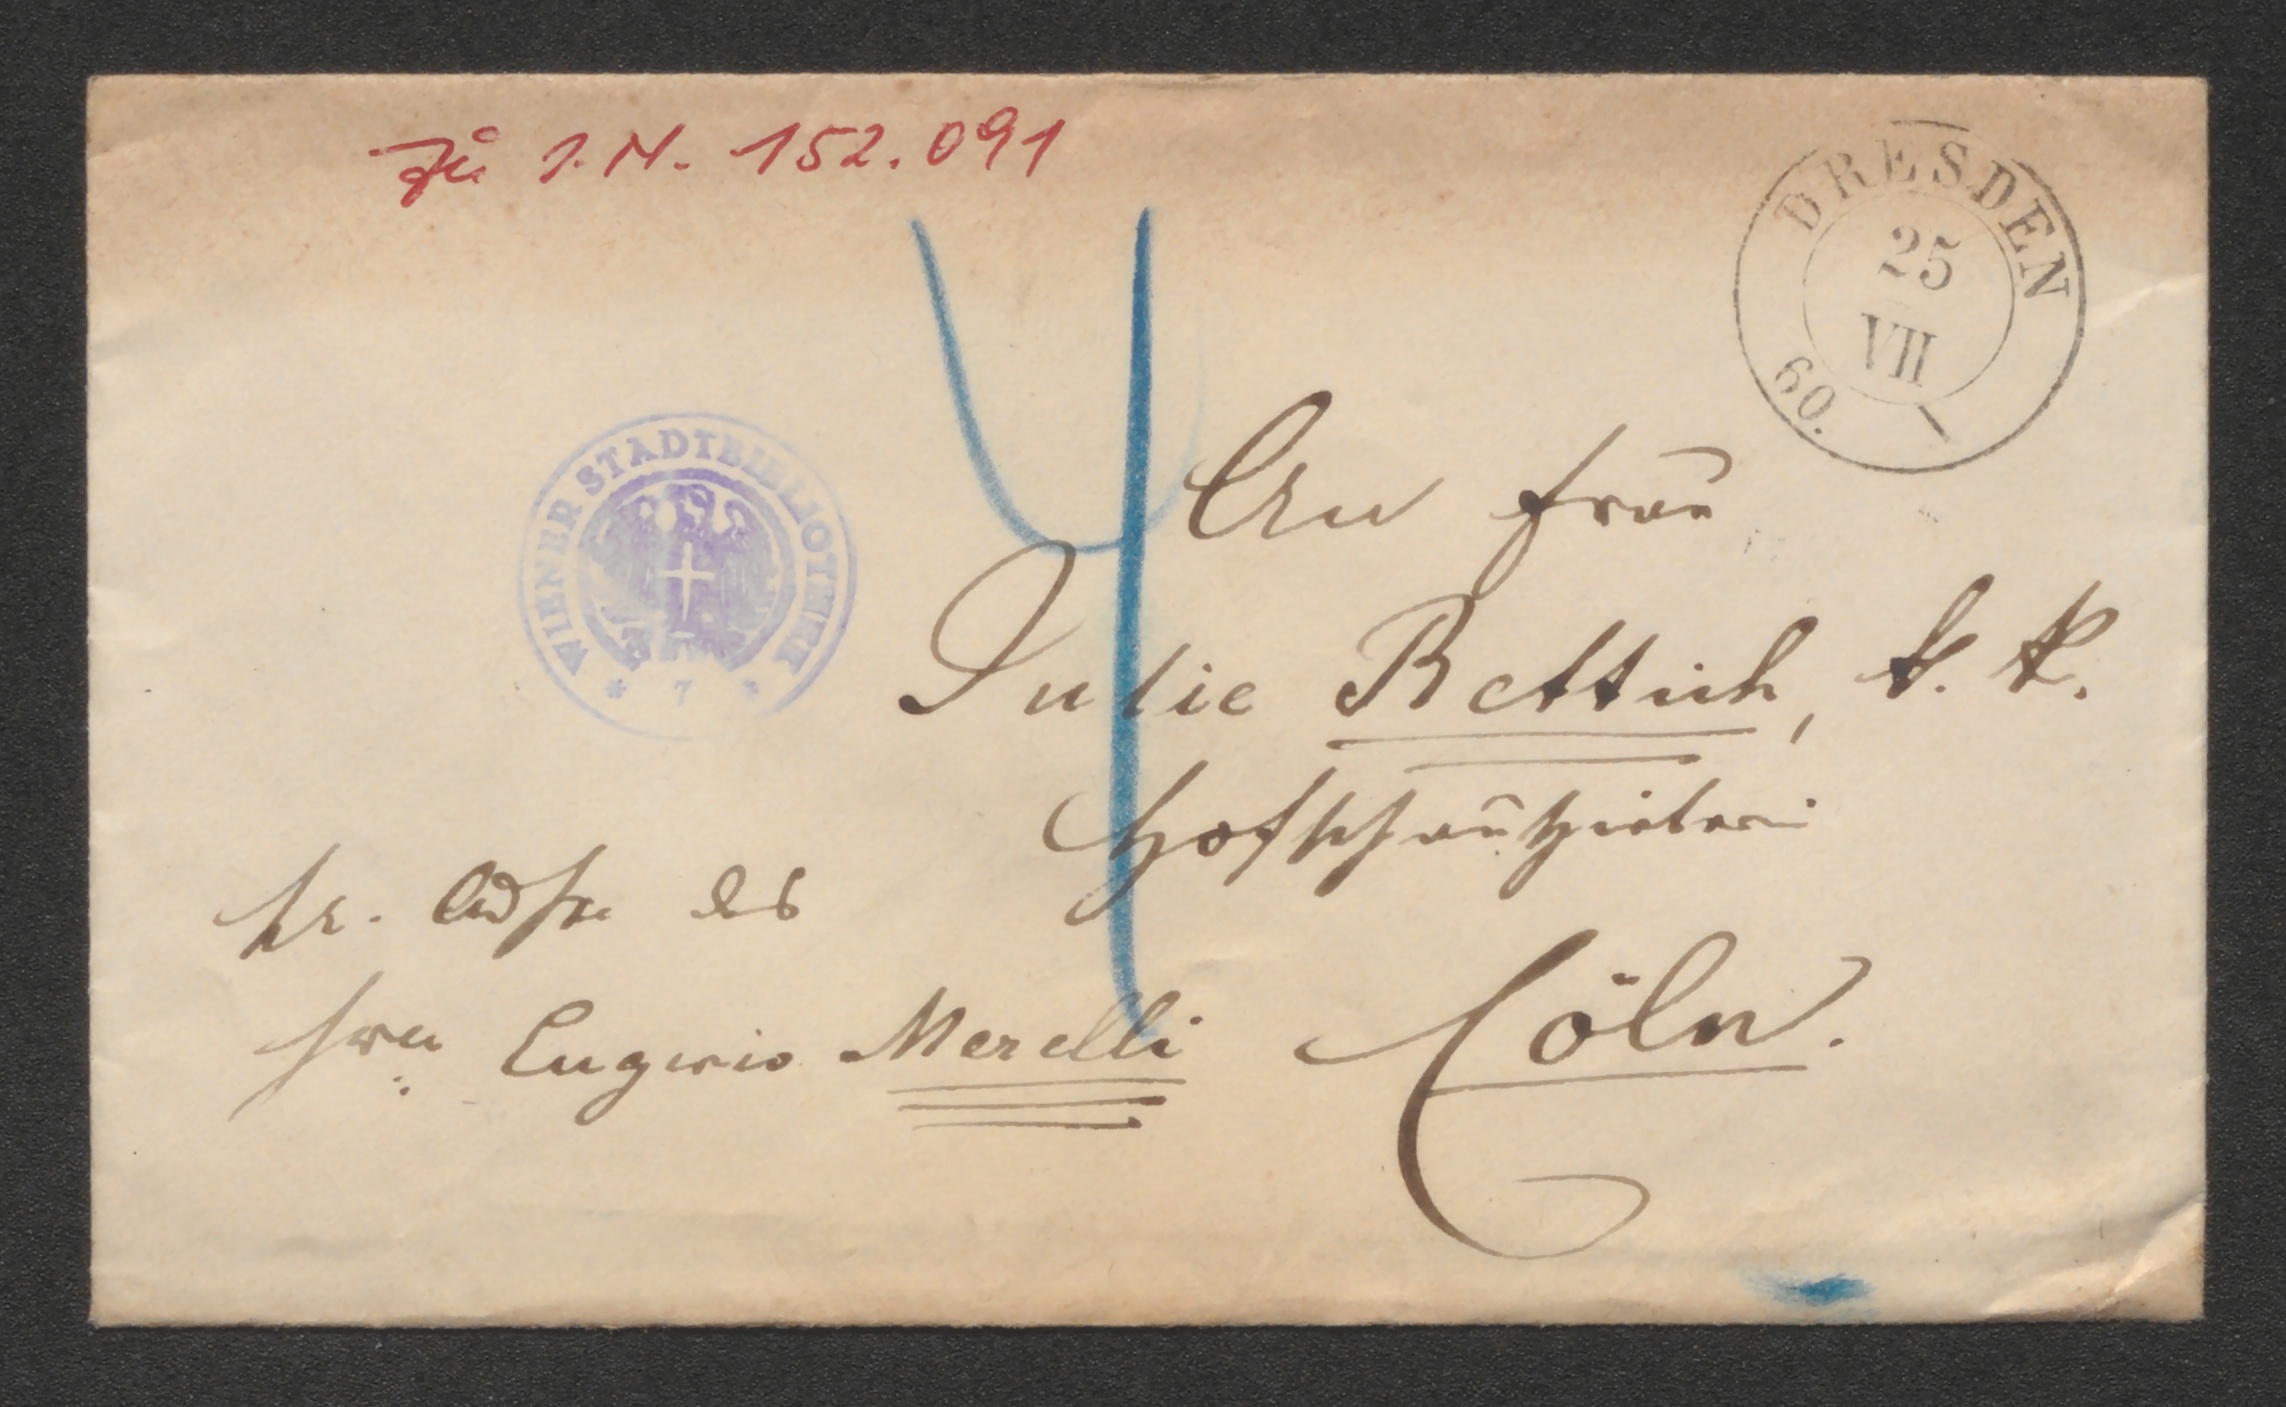 Zu I. N. 152.091
DRESDEN
25
VII
60.
WIENER STADTBIBLIOTHEK
* 7 *
4
An Frau
Julie Rettich, k. k.
Hofschauspielerin
pr. Adresse des
Herrn Eugenio Merelli
Cöln.